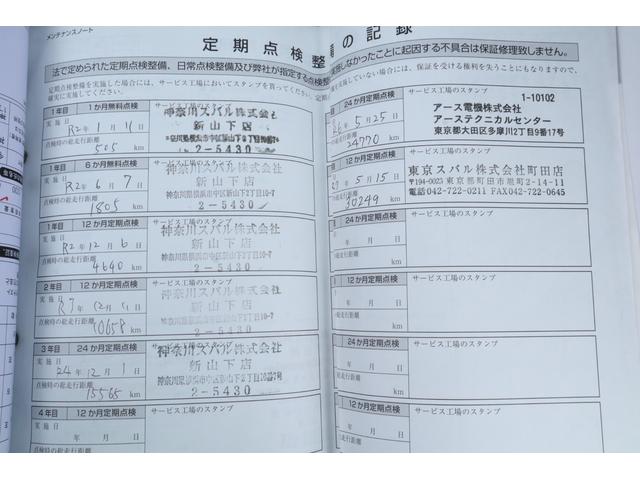 メンテナンスノート
定期点検整備の記録
法で定められた定期点検整備、日常点検整備及び弊社が指定する点検整
実施しなかったことに起因する不具合は保証修理致しません。
定期点検整備を実施した場合には、サービス工場においてスタンプを貰ってください。定期
備を実施していない場合には、保証を受ける権利を失うこともありますので、
確実に実施してください。
1年目 1か月無料点検 サービス工場のスタンプ
実施日 R2年 1月 11日
点検時の総走行距離
505 km
神奈川スバル株式会社
新山下店
神奈川県横浜市中区新山下2丁目10-7
2-5430
1年目 6か月無料点検 サービス工場のスタンプ
実施日 R2年 6月 7日
点検時の総走行距離
1805 km
神奈川スバル株式会社
新山下店
神奈川県横浜市中区新山下2丁目10-7
2-5430
1年目 12か月定期点検 サービス工場のスタンプ
実施日 R2年 12月 6日
点検時の総走行距離
4640 km
神奈川スバル株式会社
新山下店
神奈川県横浜市中区新山下2丁目10-7
2-5430
2年目 12か月定期点検 サービス工場のスタンプ
実施日 12月 11日
点検時の総走行距離
10658 km
神奈川スバル株式会社
新山下店
神奈川県横浜市中区新山下2丁目10-7
2-5430
3年目 24か月定期点検 サービス工場のスタンプ
実施日 24年 12月 1日
点検時の総走行距離
15565 km
神奈川スバル株式会社
新山下店
神奈川県横浜市中区新山下2丁目10番7号
2-5430
4年目 12か月定期点検 サービス工場のスタンプ
実施日 年 月 日
点検時の総走行距離
km
24か月定期点検 サービス工場のスタンプ
R6年 5月 25日
時の総走行距離
24770 km
1-10102
アース電機株式会社
アーステクニカルセンター
東京都大田区多摩川2丁目9番17号
12か月定期点検 サービス工場のスタンプ
年 5月 15日
の総走行距離
30249 km
東京スバル株式会社町田店
〒194-0023 東京都町田市旭町2-14-11
電話042-722-0211 FAX042-722-0645
24か月定期点検 サービス工場のスタンプ
年 月 日
総走行距離
km
12か月定期点検 サービス工場のスタンプ
年 月 日
総走行距離
km
24か月定期点検 サービス工場のスタンプ
年 月 日
総走行距離
km
12か月定期点検 サービス工場のスタンプ
年 月 日
走行距離
km